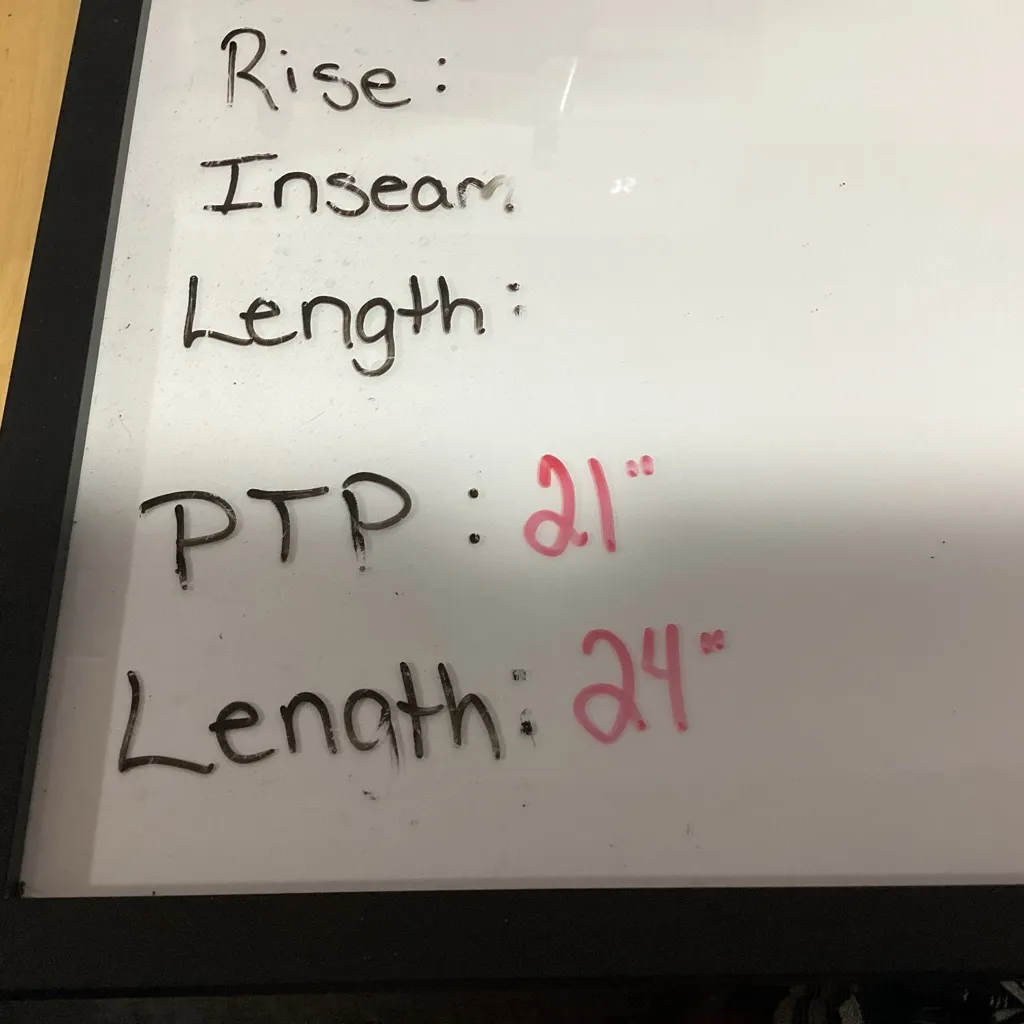 Rise:
Inseam:
Length:
PTP: 21"
Length: 24"